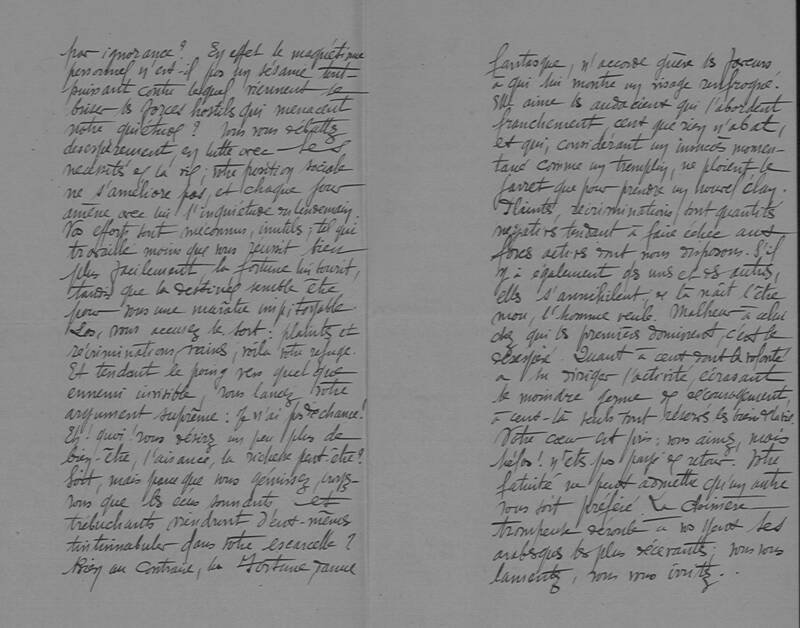 par ignorance? En effet le magnétisme
personnel n'est-il pas un sésame tout-
puissant contre lequel viennent se
briser les forces hostiles qui menacent
votre quiétude? Vous vous débattez
désespérément en lutte avec les
nécessités de la vie; votre position sociale
ne s'améliore pas, et chaque jour
amène avec lui l'inquiétude du lendemain.
Vos efforts sont méconnus, inutiles; tel qui
travaille moins que vous réussit bien
plus facilement, la fortune lui sourit,
tandis que la destinée semble être
pour vous une marâtre impitoyable
Las, vous accusez le sort! plaintes et
récriminations vaines, voilà votre refuge.
Et tendant le poing vers quelque
ennemi invisible, vous lancez votre
argument suprême: Je n'ai pas de chance!
Eh! quoi! vous désirez un peu plus de
bien-être, l'aisance, la richesse peut-être?
Soit, mais parce que vous gémissez, croyez-
vous que les écus sonnants et
trébuchants viendront d'eux-mêmes
tintinnabuler dans votre escarcelle?
Bien au contraire, la Fortune, femme
fantasque, n'accorde guère ses faveurs
à qui lui montre un visage renfrogné.
Elle aime les audacieux qui l'abordent
franchement, ceux que rien n'abat,
et qui, considérant un insuccès momen-
tané comme un tremplin, ne ploient le
jarret que pour prendre un nouvel élan.
Plaintes, récriminations sont quantités
négatives tendant à faire échec aux
forces actives dont nous disposons. S'il
y a également des unes et des autres,
elles s'annihilent, de là naît l'être
mou, l'homme veule. Malheur à celui
chez qui les premières dominent, c'est le
désespéré. Quant à ceux dont la volonté
a su diriger l'activité, écrasant
le moindre germe de découragement,
à ceux-là seuls sont réservés les biens
Votre cœur est pris: vous aimez, mais
hélas! n'êtes pas payé de retour. Votre
fatuité ne peut admettre qu'un autre
vous soit préféré. La chimère
trompeuse déroule à vos yeux ses
arabesques les plus décevantes; vous vous
lamentez, vous vous irritez..